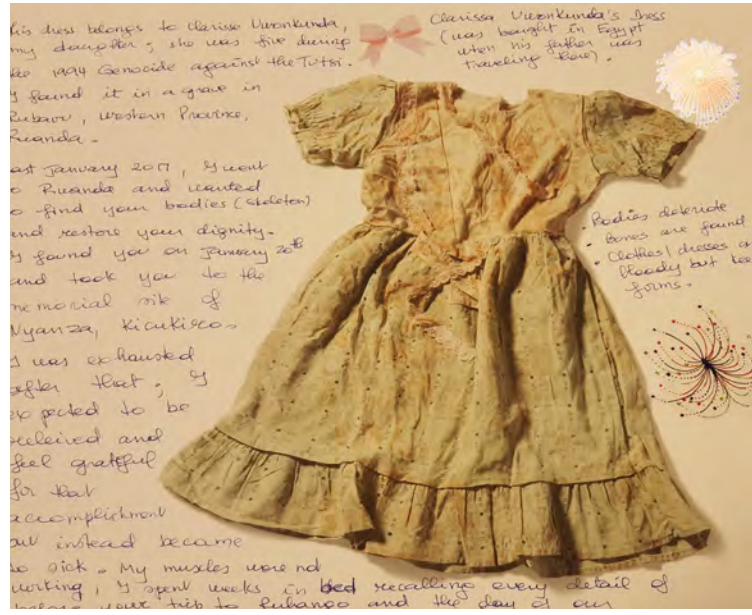 his dress belongs to Clarisse Uwonkunda,
my daughter; she was five during
he 1994 Genocide against the Tutsi.
I found it in a grave in
Rubavu, Western Province,
Rwanda.
ast January 2017, I went
o Rwanda and wanted
o find your bodies (skeleton)
and restore your dignity.
I found you on January 20th
and took you to the
memorial site of
Nyanza, Kicukiro.
I was exhausted
after that; I
expected to be
relieved and
feel grateful
for that
accomplishment
but instead became
so sick. My muscles were not
working, I spent weeks in bed recalling every detail of
before your trip to and the day of our
Clarissa Uwonkunda's Dress
(was bought in Egypt
when his father was
traveling there).
• Bodies deteriote
• Bones are found
• Clothes/ dresses a
bloody but kee
forms.